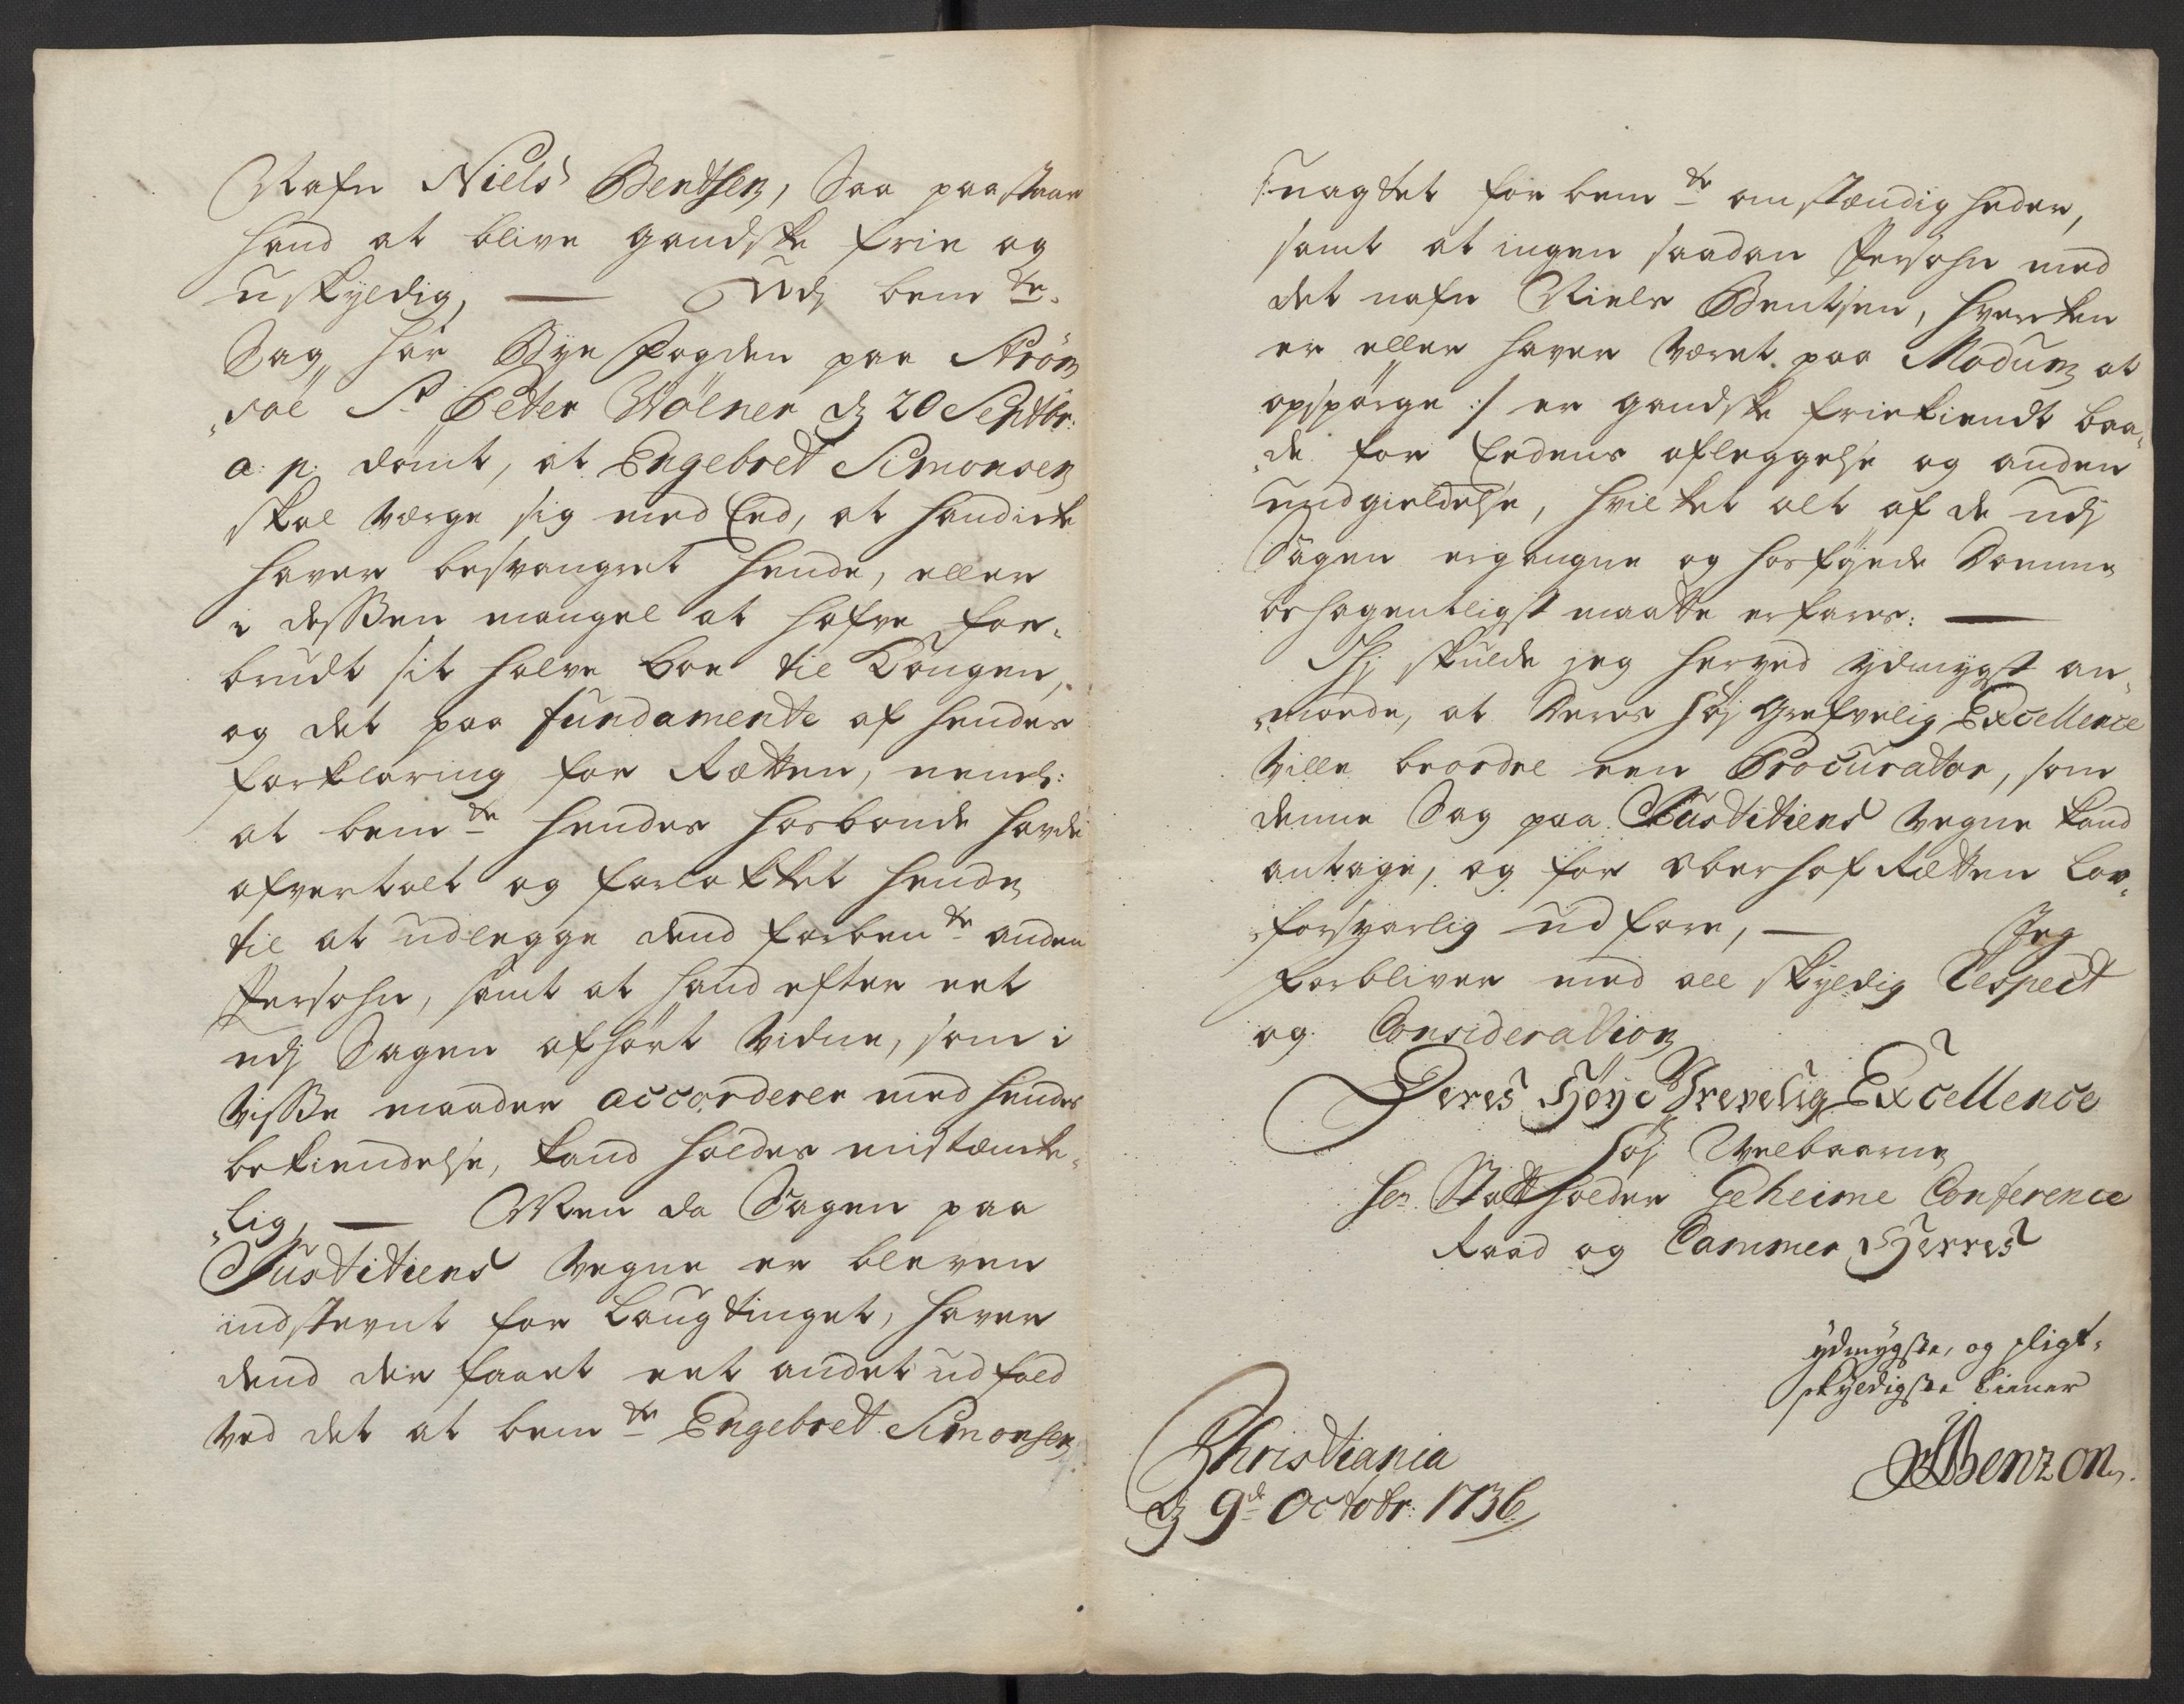 Nafn Niels Bendtsen, Saa paastaar
hand at blive gandske frie og
uskyldig, — Udj bem.te
Sag, har Bye Fogden paa Ström
„söe Sr Peter Wölner d 20 Septbr:
a: p: dömt, at Engebret Simonsen
skal verge sig med Eed, at hand icke
haver besvangret hende, eller
i dessen mangel at hafve for„
brudt sit halve boe til Kongen,
og det paa fundamente af hendes
forklaring for Retten, neml:
at bem.te hendes hosbonde havde
ofvertalt og forlokket hende
til at udlegge dend forben.te anden
Persohn, samt at hand efter eet
udj Sagen afhört vidne, som i
visse maader accorderer med hendes
bekiendelse, kand holdes mistæncke„
„lig, — Men da Sagen paa
Justitiens vegne er bleven
indstevnt for Laugtinget, haver
dend der faaet eet andet udfald
ved det at bem.te Engebret Simonsen
/: uagtet for bem.te omstændigheder,
samt at ingen saadan Persohn med
det nafn Niels Bentsen, hvercken
er eller haver været paa Modum at
opspörge :/ er gandske friekiendt baa„
„de for Eedens aflæggelse og anden
undgieldelse, hvilket alt af de udj
Sagen ergangne og hosföjede Domme
behagentligst maatte erfares: —
Thj skulde jeg herved ydmygst an„
„mode, at Deres Höj Grefvelig Excellence
ville beordre een Procurator, som
denne Sag paa Justitiens vegne kand
antage, og for Oberhof Retten lov„
„forsvarlig udföre, — Jeg
forbliver med all skyldig Respect
og Consideration
Deres Höye Grevelig Excellence
Höj Velbaarne
Hr. Statholder Geheime Conference
Raad og Cammer Herres
ydmygste, og pligt„
skyldigste tiener
Benzon
Christiania
d 9de Octobr: 1736